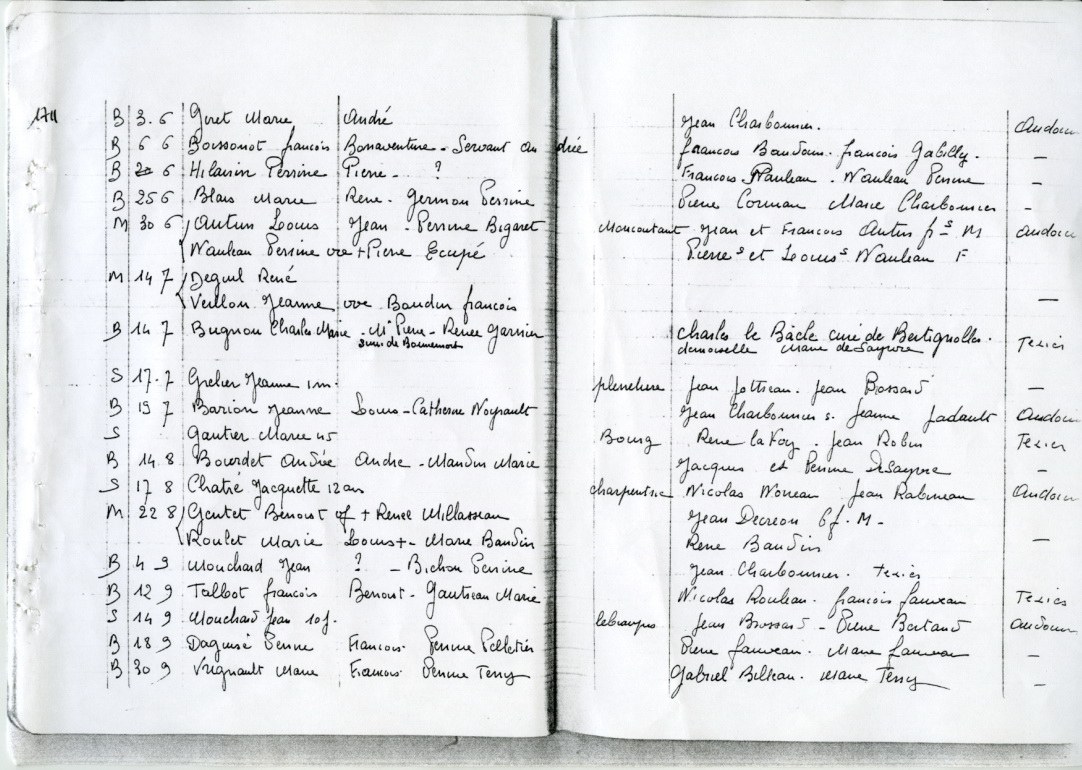 1711
B 3.6 Goret Marie André Jean Charbonnier. Audouin
B 6 6 Boissonot françois Bonaventure - Servant Andrée françois Baudouin. françois Gabilly. —
B 20 6 Hilairin Perrine Pierre - ? François Nauleau. Nauleau Perrine —
B 25 6 Blais Marie René. Germon Perrine Pierre Cornuau Marie Charbonnier -
M 30 6 Autin Louis Jean - Perrine Bigaret Moncoutant Jean et François Autin frs M Audouin
Nauleau Perrine vve + Pierre Ecupé Pierre s et Louis s Nauleau F
M 14 7 Deguil René
Veillon Jeanne vve Baudin françois —
B 14 7 Bugnon Charles Marie - Mr Pierre - Renée Garnier Charles le Bâcle curé de Bertignolles. Texier
demoiselle Marie de Sayvre
S 17.7 Grelier Jeanne 1m. plenelière Jean Jottreau. Jean Bossard —
B 19 7 Barion Jeanne Louis - Catherine Noyrault Jean Charbonnier s. Jeanne Jadault Audouin
S Gautier Marie 45 Bourg René laFoy. Jean Robin Texier
B 14.8 Bourdet Andrée André - Maudin Marie Jacques et Perrine deSayvre —
S 17 8 Chatré Jacquette 12 ans charpentrie Nicolas Noneau Jean Rabineau Audouin
M 22 8 Gentet Benoist vf + Renée Millasseau Jean Decreon bf. M -
Roulet Marie Louis + - Marie Baudin René Baudin —
B 4 9 Mouchard Jean ? - Bichon Perrine Jean Charbonnier. Texier
B 12 9 Talbot françois Benoist - Gautreau Marie Nicolas Rouleau. françois fauveau Texier
S 14 9 Mouchard Jean 10j. Jean Brossard - Pierre Bertaud Audouin
B 18 9 Daguisé Perrine François. Perrine Pelletier Pierre fauveau. Marie fauveau —
B 30 9 Vrignault Marie François. Perrine Terry Gabriel Bilteau. Marie Terry —